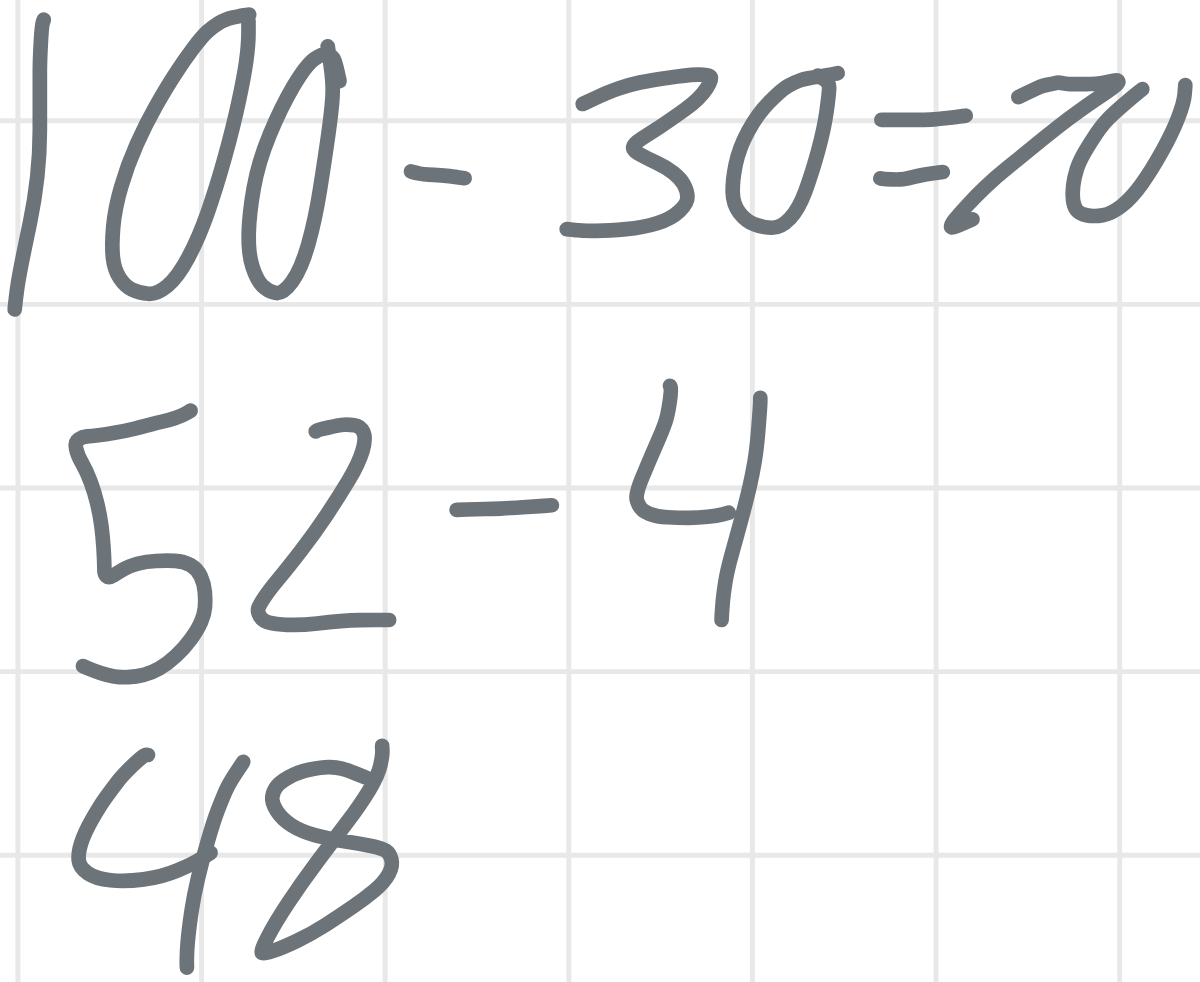 100 - 30 = 70
52 - 4
48